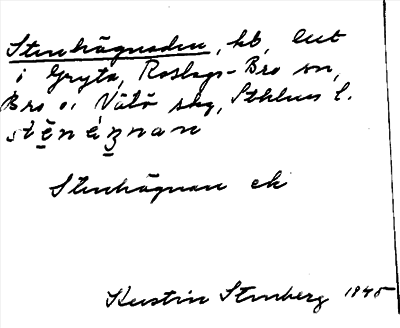 Stenhägnaden, hb, beet
i Gryta, Roslags-Bro sn,
Bro o. Vätö skg, Sthlms l.
stēnéʒnan
Stenhägnan ek
Kerstin Stenberg 1945